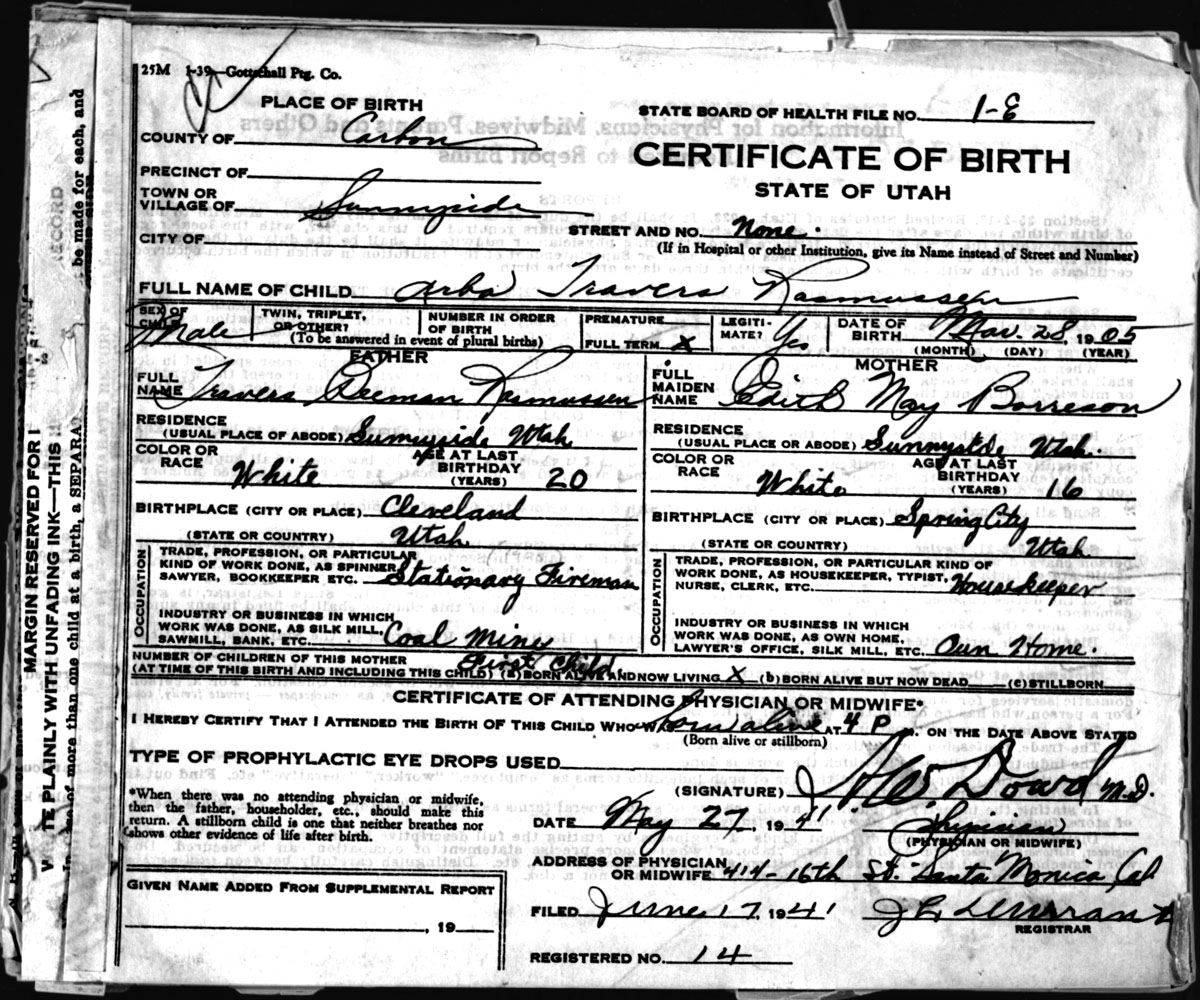 25M 1-39—Gottschall Ptg. Co.
PLACE OF BIRTH
COUNTY OF Carbon
PRECINCT OF
TOWN OR VILLAGE OF Sunnyside
CITY OF
STATE BOARD OF HEALTH FILE NO. 1-E
CERTIFICATE OF BIRTH
STATE OF UTAH
STREET AND NO. None.
(If in Hospital or other Institution, give its Name instead of Street and Number)
FULL NAME OF CHILD Arba Travers Rasmussen
SEX OF CHILD Male
TWIN, TRIPLET, OR OTHER?
NUMBER IN ORDER OF BIRTH
(To be answered in event of plural births)
PREMATURE
FULL TERM X
LEGITIMATE? Yes
DATE OF BIRTH Mar. 28, 1905
(MONTH) (DAY) (YEAR)
FATHER
FULL NAME Travers Rasmussen
RESIDENCE
(USUAL PLACE OF ABODE) Sunnyside Utah
COLOR OR RACE White
AGE AT LAST BIRTHDAY (YEARS) 20
BIRTHPLACE (CITY OR PLACE) Cleveland
(STATE OR COUNTRY) Utah
OCCUPATION
TRADE, PROFESSION, OR PARTICULAR
KIND OF WORK DONE, AS SPINNER,
SAWYER, BOOKKEEPER ETC. Stationary Fireman
INDUSTRY OR BUSINESS IN WHICH
WORK WAS DONE, AS SILK MILL,
SAWMILL, BANK, ETC. Coal Mine
MOTHER
FULL MAIDEN NAME Edith May Borreson
RESIDENCE
(USUAL PLACE OR ABODE) Sunnyside Utah.
COLOR OR RACE White
AGE AT LAST BIRTHDAY (YEARS) 16
BIRTHPLACE (CITY OR PLACE) Spring City
(STATE OR COUNTRY) Utah
OCCUPATION
TRADE, PROFESSION, OR PARTICULAR KIND OF
WORK DONE, AS HOUSEKEEPER, TYPIST,
NURSE, CLERK, ETC. Housekeeper
INDUSTRY OR BUSINESS IN WHICH
WORK WAS DONE, AS OWN HOME,
LAWYER'S OFFICE, SILK MILL, ETC. Own Home.
NUMBER OF CHILDREN OF THIS MOTHER First Child
(AT TIME OF THIS BIRTH AND INCLUDING THIS CHILD) (a) BORN ALIVE AND NOW LIVING X (b) BORN ALIVE BUT NOW DEAD (c) STILLBORN
CERTIFICATE OF ATTENDING PHYSICIAN OR MIDWIFE*
I HEREBY CERTIFY THAT I ATTENDED THE BIRTH OF THIS CHILD WHO WAS born alive AT 4 P M. ON THE DATE ABOVE STATED
(Born alive or stillborn)
TYPE OF PROPHYLACTIC EYE DROPS USED
*When there was no attending physician or midwife,
then the father, householder, etc., should make this
return. A stillborn child is one that neither breathes nor
shows other evidence of life after birth.
(SIGNATURE) Dowd M.D.
DATE May 27, 1941 Physician
(PHYSICIAN OR MIDWIFE)
ADDRESS OF PHYSICIAN
OR MIDWIFE 414-16th St. Santa Monica Cal
GIVEN NAME ADDED FROM SUPPLEMENTAL REPORT
, 19
FILED June 17, 1941
REGISTRAR
REGISTERED NO. 14
MARGIN RESERVED FOR
TE PLAINLY WITH UNFADING INK—THIS
of more than one child at a birth, a SEPARA
be made for each, and
RECORD